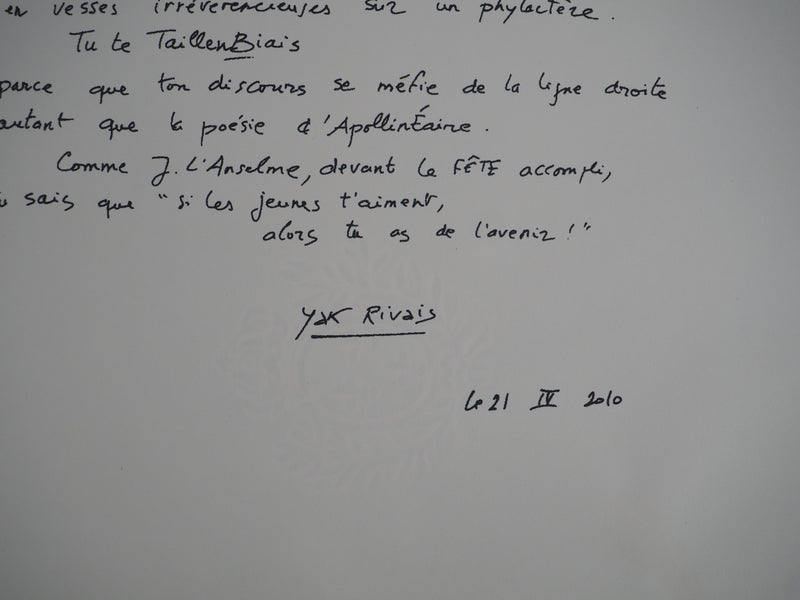 en vesses irrévérencieuses sur un phylactère.
Tu te TaillenBiais
parce que ton discours se méfie de la ligne droite
autant que la poésie d'ApollinÉaire.
Comme J. L'Anselme, devant le FÊTE accompli,
sais que "si les jeunes t'aiment,
alors tu as de l'avenir!"
Yak Rivais
le 21 IV 2010